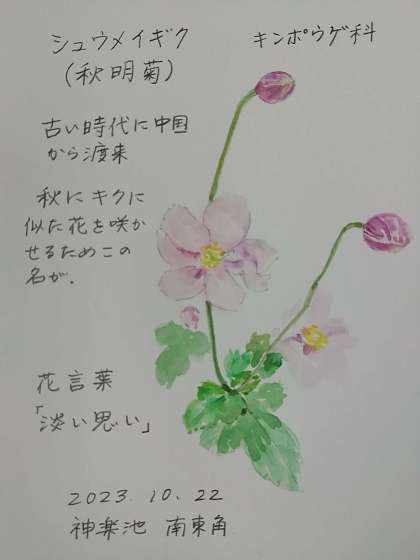 シュウメイギク キンポウゲ科
(秋明菊)
古い時代に中国
から渡来
秋にキクに
似た花を咲か
せるためこの
名が.
花言葉
「淡い思い」
2023. 10. 22
神楽池 南東角